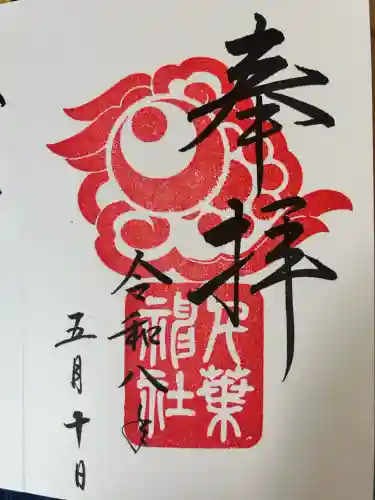 奉拝
千葉
神社
令和八年
五月十日